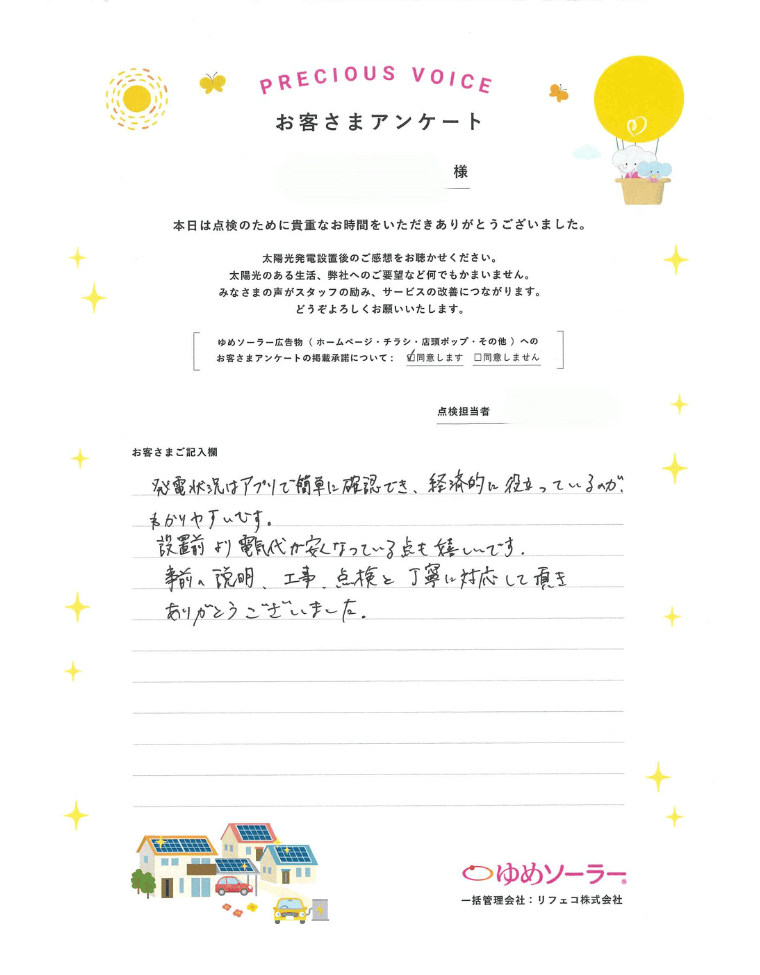 PRECIOUS VOICE
お客さまアンケート
様
本日は点検のために貴重なお時間をいただきありがとうございました。
太陽光発電設置後のご感想をお聴かせください。
太陽光のある生活、弊社へのご要望など何でもかまいません。
みなさまの声がスタッフの励み、サービスの改善につながります。
どうぞよろしくお願いいたします。
ゆめソーラー広告物（ ホームページ・チラシ・店頭ポップ・その他 ）への
お客さまアンケートの掲載承諾について： ☑同意します □同意しません
点検担当者
お客さまご記入欄
発電状況はアプリで簡単に確認でき、経済的に役立っているのが、
わかりやすいです。
設置前より電気代が安くなっている点も嬉しいです。
事前の説明、工事、点検と丁寧に対応して頂き
ありがとうございました。
ゆめソーラー®
一括管理会社：リフェコ株式会社